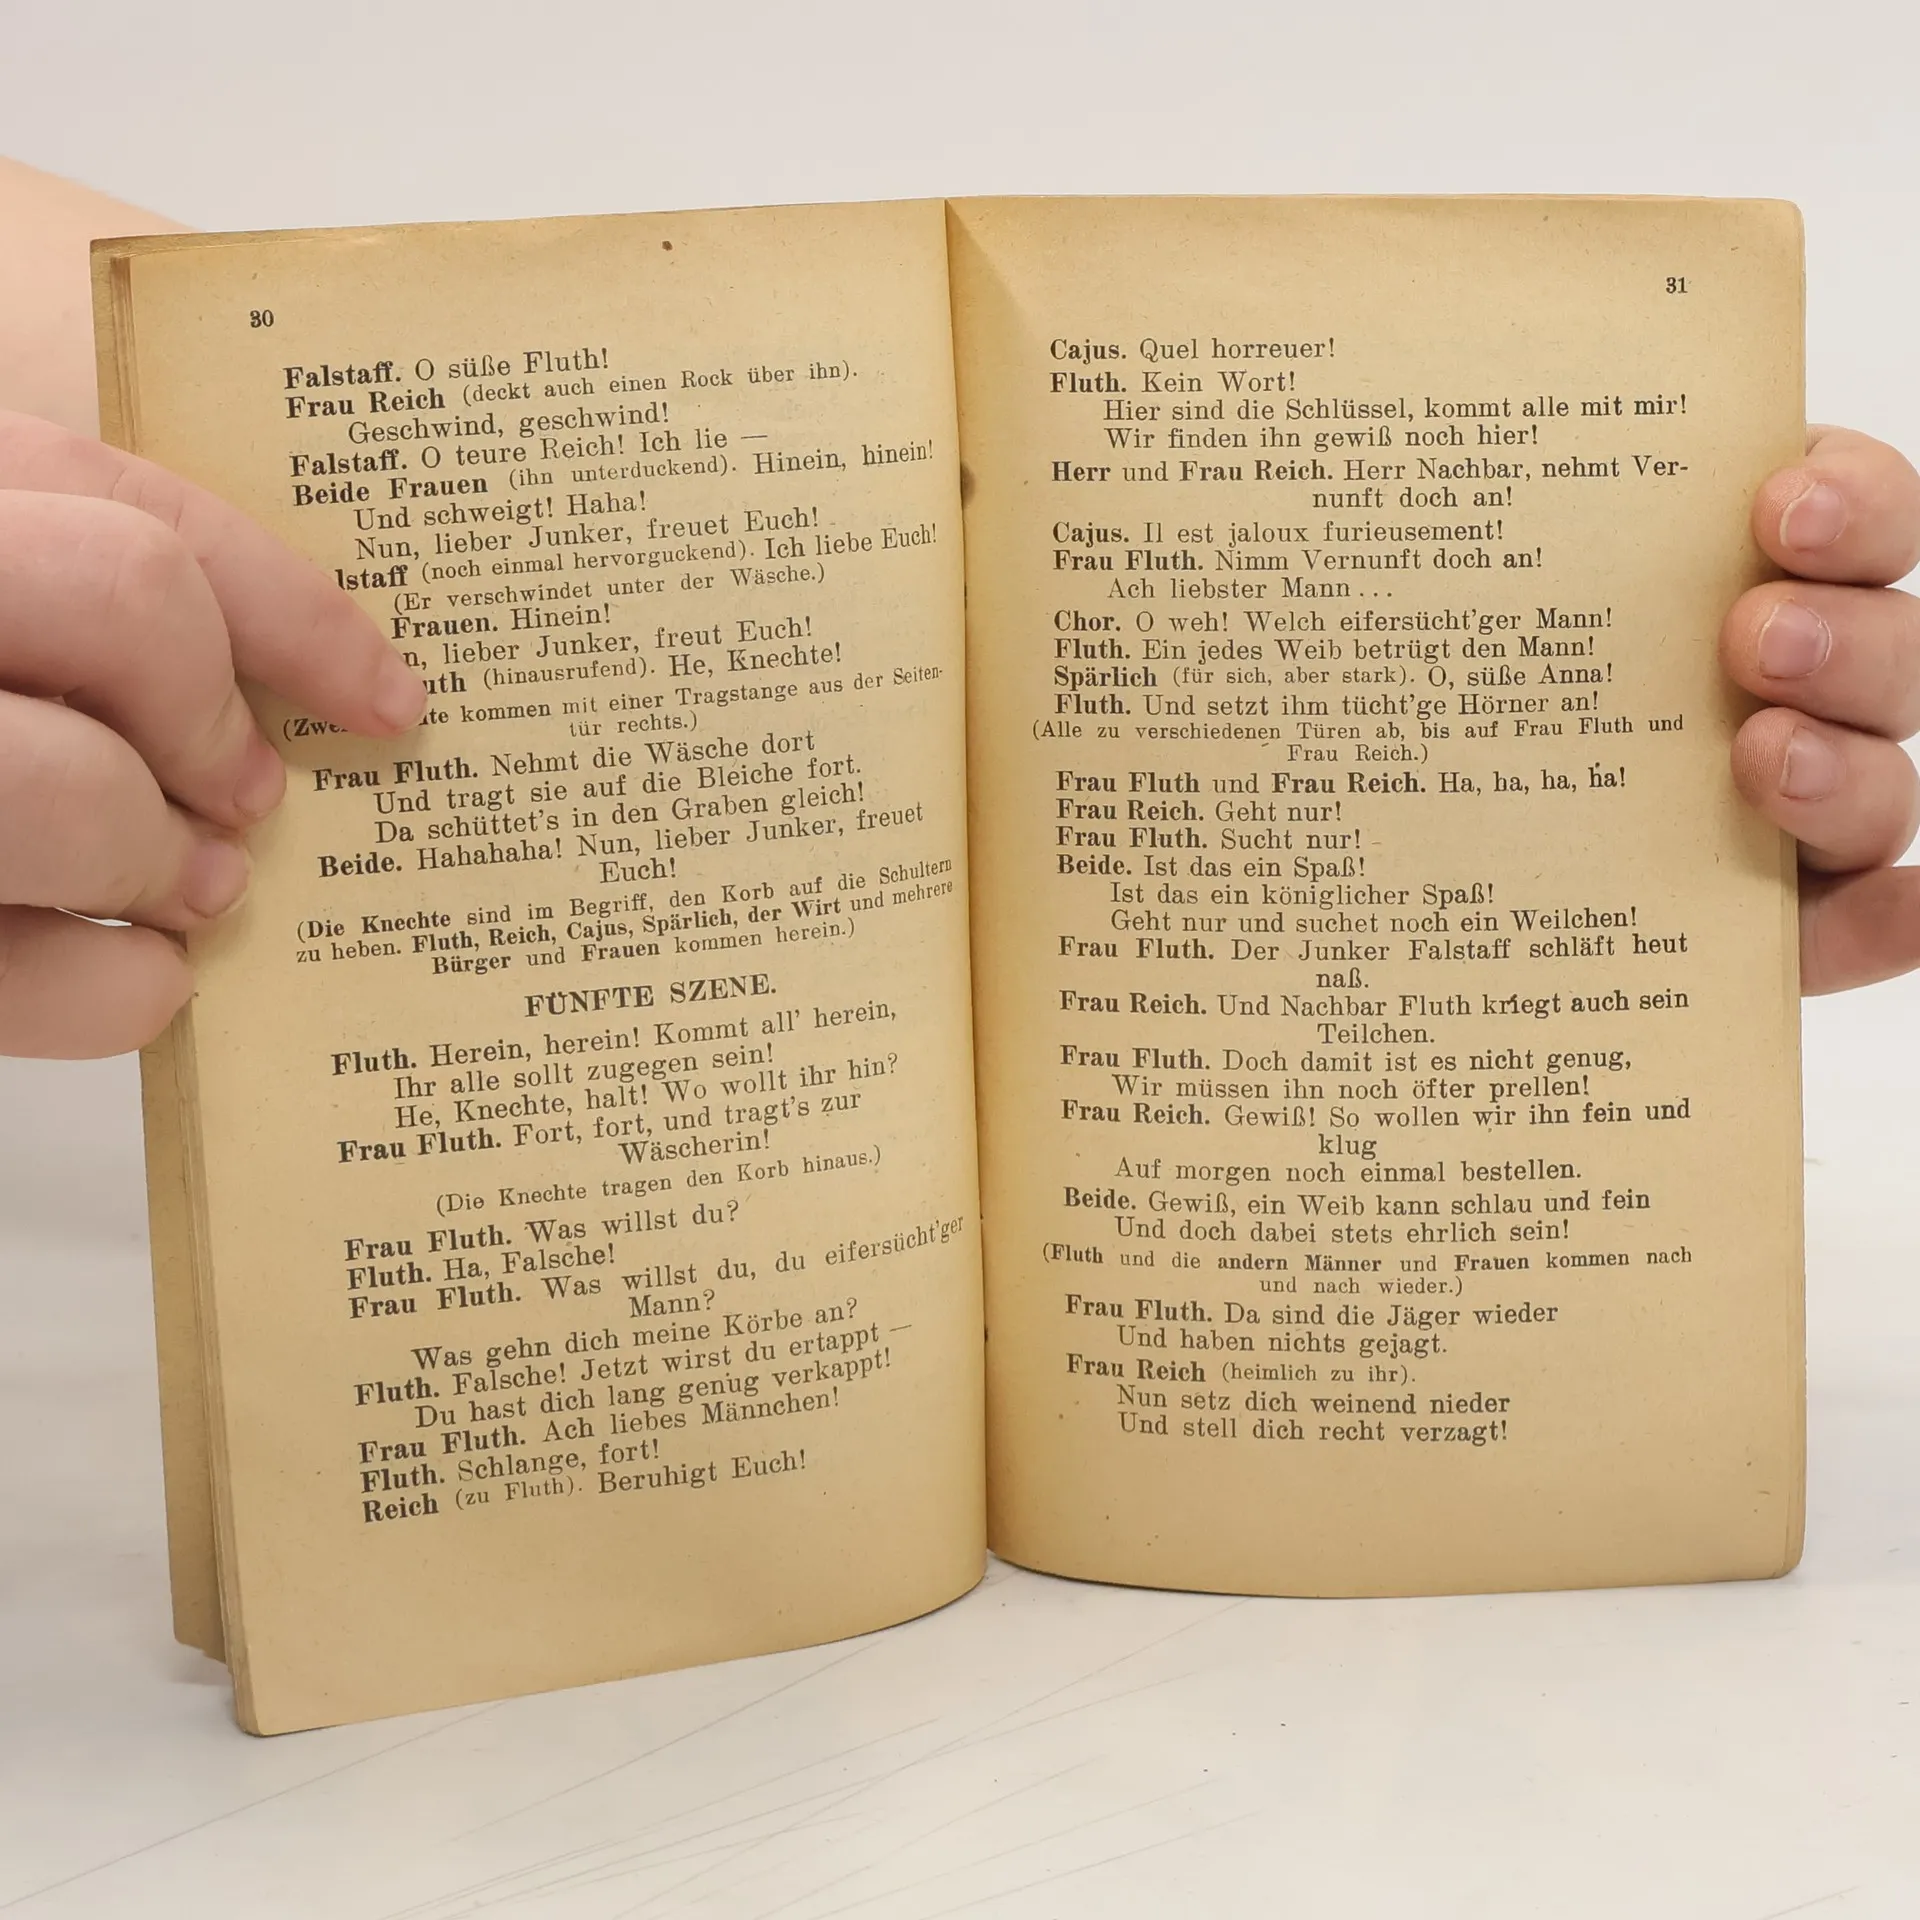 30
Falstaff. O süße Fluth!
Frau Reich (deckt auch einen Rock über ihn).
Geschwind, geschwind!
Falstaff. O teure Reich! Ich lie —
Beide Frauen (ihn unterduckend). Hinein, hinein!
Und schweigt! Haha!
Nun, lieber Junker, freuet Euch!
lstaff (noch einmal hervorguckend). Ich liebe Euch!
(Er verschwindet unter der Wäsche.)
Frauen. Hinein!
n, lieber Junker, freut Euch!
uth (hinausrufend). He, Knechte!
(Zwe te kommen mit einer Tragstange aus der Seiten-
tür rechts.)
Frau Fluth. Nehmt die Wäsche dort
Und tragt sie auf die Bleiche fort.
Da schüttet's in den Graben gleich!
Beide. Hahahaha! Nun, lieber Junker, freuet
Euch!
(Die Knechte sind im Begriff, den Korb auf die Schultern
zu heben. Fluth, Reich, Cajus, Spärlich, der Wirt und mehrere
Bürger und Frauen kommen herein.)
FÜNFTE SZENE.
Fluth. Herein, herein! Kommt all' herein,
Ihr alle sollt zugegen sein!
He, Knechte, halt! Wo wollt ihr hin?
Frau Fluth. Fort, fort, und tragt's zur
Wäscherin!
(Die Knechte tragen den Korb hinaus.)
Frau Fluth. Was willst du?
Fluth. Ha, Falsche!
Frau Fluth. Was willst du, du eifersücht'ger
Mann?
Was gehn dich meine Körbe an?
Fluth. Falsche! Jetzt wirst du ertappt —
Du hast dich lang genug verkappt!
Frau Fluth. Ach liebes Männchen!
Fluth. Schlange, fort!
Reich (zu Fluth). Beruhigt Euch!
31
Cajus. Quel horreuer!
Fluth. Kein Wort!
Hier sind die Schlüssel, kommt alle mit mir!
Wir finden ihn gewiß noch hier!
Herr und Frau Reich. Herr Nachbar, nehmt Ver-
nunft doch an!
Cajus. Il est jaloux furieusement!
Frau Fluth. Nimm Vernunft doch an!
Ach liebster Mann ...
Chor. O weh! Welch eifersücht'ger Mann!
Fluth. Ein jedes Weib betrügt den Mann!
Spärlich (für sich, aber stark). O, süße Anna!
Fluth. Und setzt ihm tücht'ge Hörner an!
(Alle zu verschiedenen Türen ab, bis auf Frau Fluth und
Frau Reich.)
Frau Fluth und Frau Reich. Ha, ha, ha, ha!
Frau Reich. Geht nur!
Frau Fluth. Sucht nur!
Beide. Ist das ein Spaß!
Ist das ein königlicher Spaß!
Geht nur und suchet noch ein Weilchen!
Frau Fluth. Der Junker Falstaff schläft heut
naß.
Frau Reich. Und Nachbar Fluth kriegt auch sein
Teilchen.
Frau Fluth. Doch damit ist es nicht genug,
Wir müssen ihn noch öfter prellen!
Frau Reich. Gewiß! So wollen wir ihn fein und
klug
Auf morgen noch einmal bestellen.
Beide. Gewiß, ein Weib kann schlau und fein
Und doch dabei stets ehrlich sein!
(Fluth und die andern Männer und Frauen kommen nach
und nach wieder.)
Frau Fluth. Da sind die Jäger wieder
Und haben nichts gejagt.
Frau Reich (heimlich zu ihr).
Nun setz dich weinend nieder
Und stell dich recht verzagt!